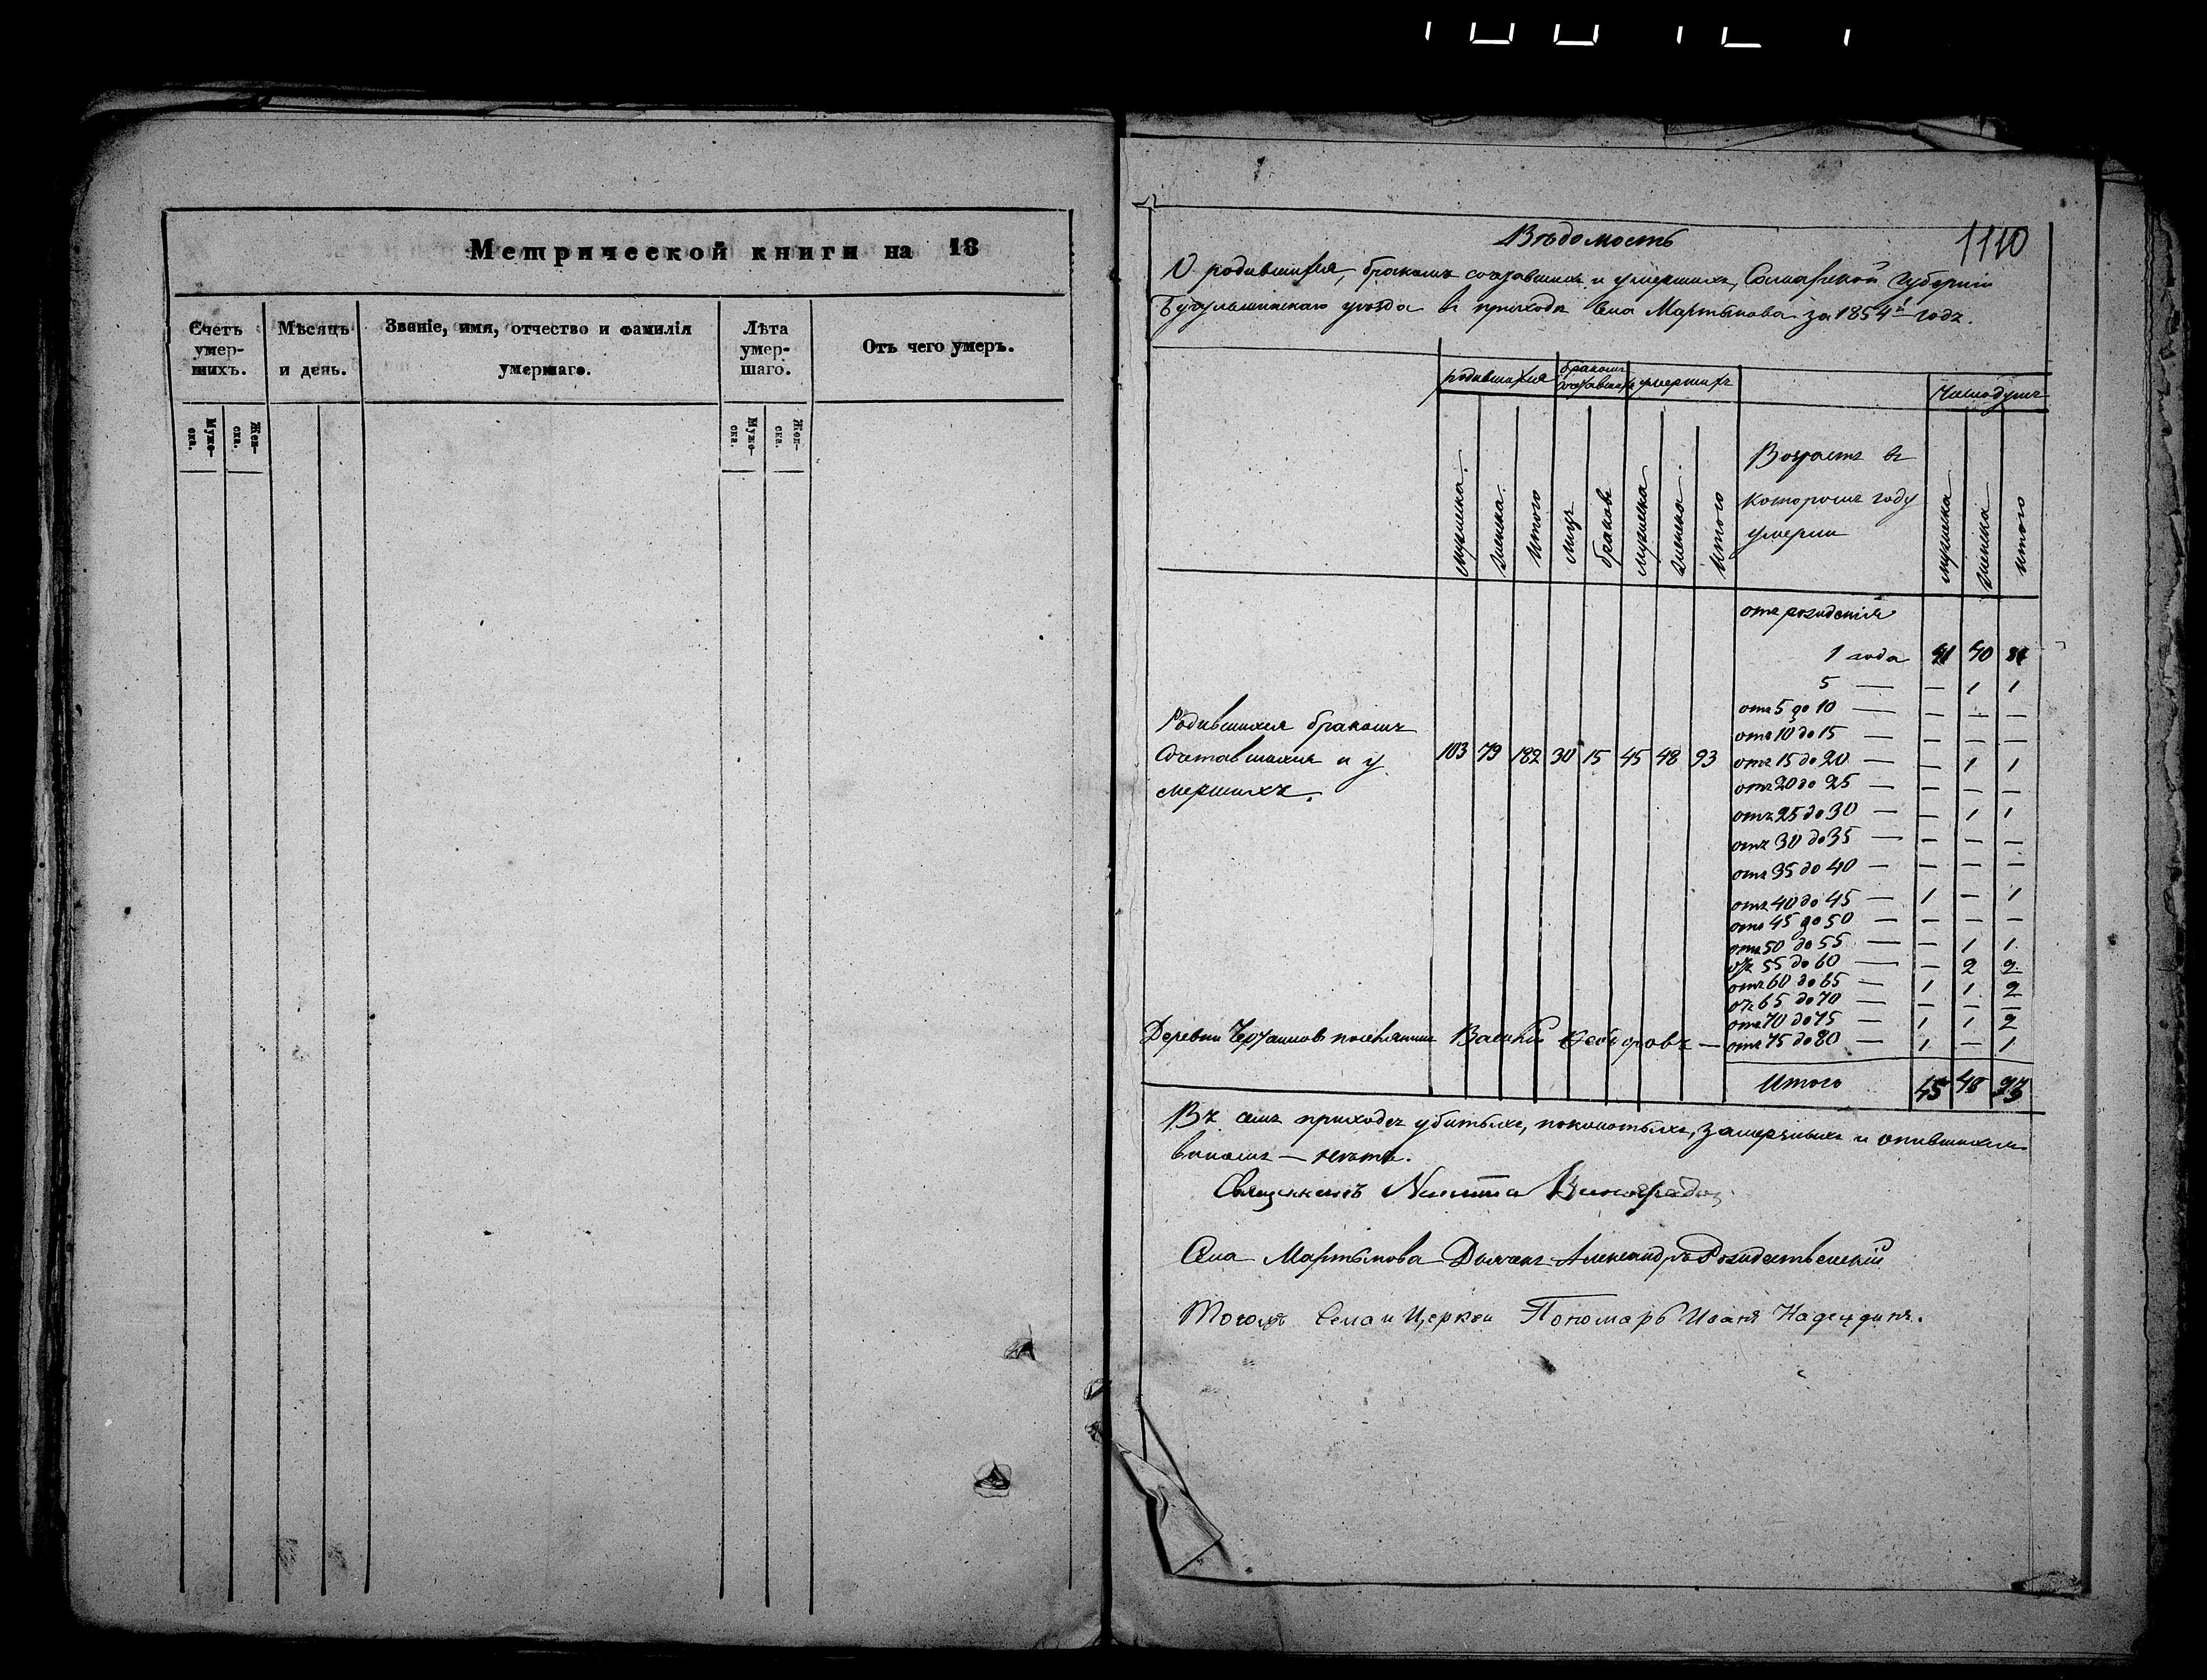 Метрической книги на 18
Счетъ умер-шихъ.
Мѣсяцъ и день.
Званіе, имя, отчество и фамилія умершаго.
Лѣта умер-шаго.
Отъ чего умеръ.
Муже-ска.
Жен-ска.
Муже-ска.
Жен-ска.
1110
Вѣдомость
О родившихся, бракомъ сочетавшихся и умершихъ, Самарской Губерніи
Бугульминскаго уѣзда въ приходѣ села Мартынова за 1854й годъ.
родившихся
бракомъ сочетавшихся
умершихъ
Число душъ
мужеска.
женска.
итого
лицъ
браковъ
мужеска
женска
итого
Возрастъ въ
которомъ году
умерли
мужеска
женска
итого
отъ рожденія
1 года 41 40 81
5 — — 1 1
отъ 5 до 10 — — — —
отъ 10 до 15 — — — —
Родившихся бракомъ
сочетавшихся и у
мершихъ.
103 79 182 30 15 45 48 93
отъ 15 до 20 — — 1 1
отъ 20 до 25 — — — —
отъ 25 до 30 — — 1 1
отъ 30 до 35 — — — —
отъ 35 до 40 — — — —
отъ 40 до 45 — 1 — 1
отъ 45 до 50 — — — —
отъ 50 до 55 — — 1 1
отъ 55 до 60 — — 2 2
отъ 60 до 65 — 1 1 2
отъ 65 до 70 — — — —
отъ 70 до 75 — 1 1 2
Деревни Василій Ѳеодоровъ —
отъ 75 до 80 — 1 — 1
Итого 45 48 93
Въ семъ приходѣ убитыхъ, замерзшихъ и опившихся
виномъ — нѣтъ.
Священникъ Никита Виноградов
Села Мартынова Дьяконъ Александръ Рождественскій
Тогожъ Села и Церкви Пономарь Иванъ Надеждинъ.